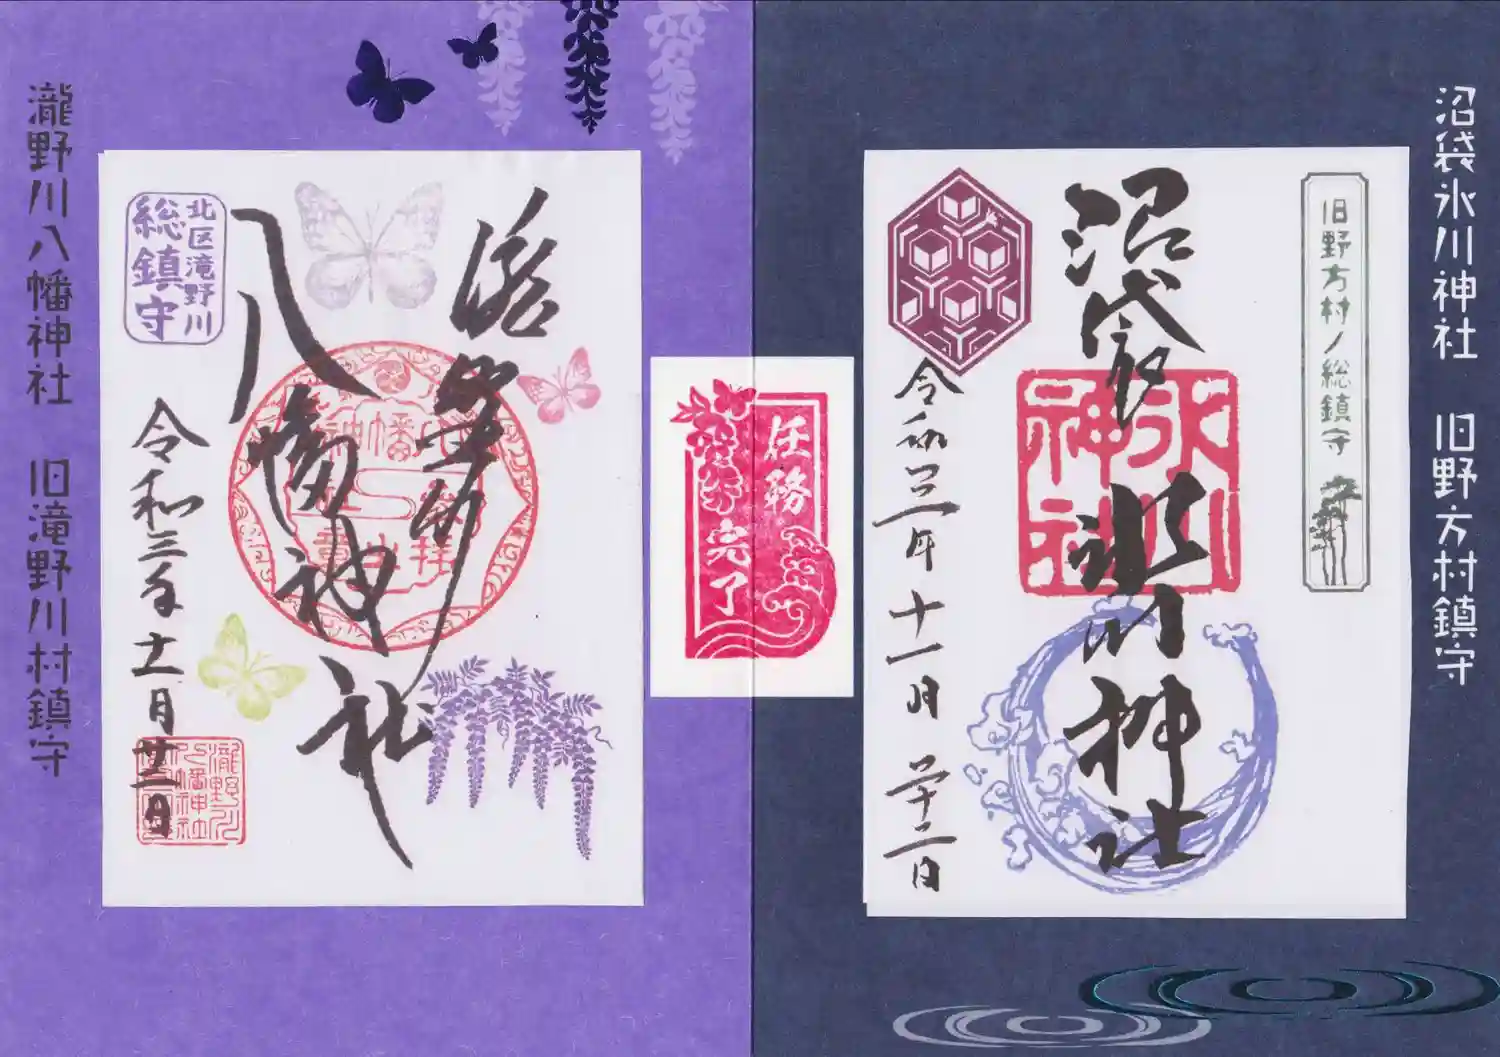 沼袋氷川神社 旧野方村鎮守
旧野方村ノ総鎮守
沼袋
氷川神社
氷川神社
令和三年十一月二十二日
任務
完了
瀧野川
八幡神社
北区滝野川
総鎮守
令和三年十一月廿二日
瀧野川八幡神社 旧滝野川村鎮守